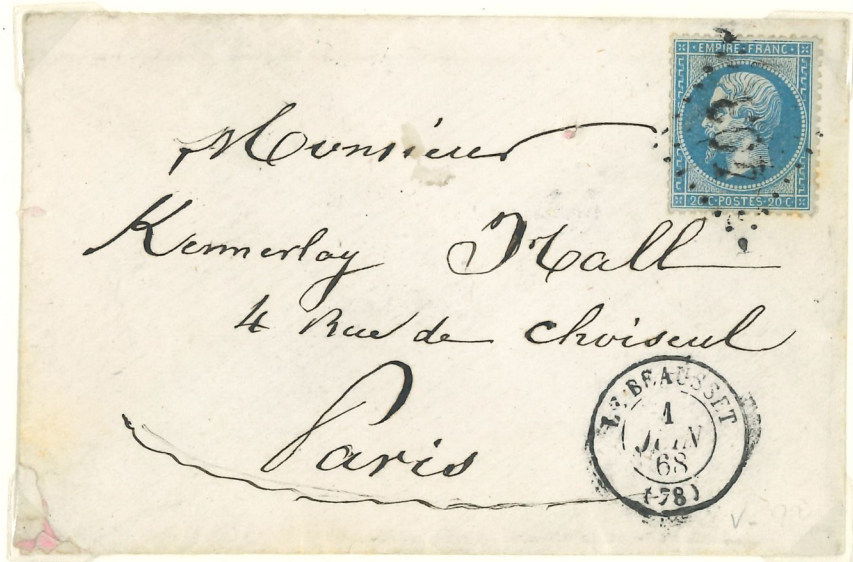 EMPIRE·FRANC·
20 C·POSTES·20 C
Monsieur
Kennerley Hall
4 Rue de Choiseul
Paris
LE BEAUSSET
1
JUIN
68
(78)